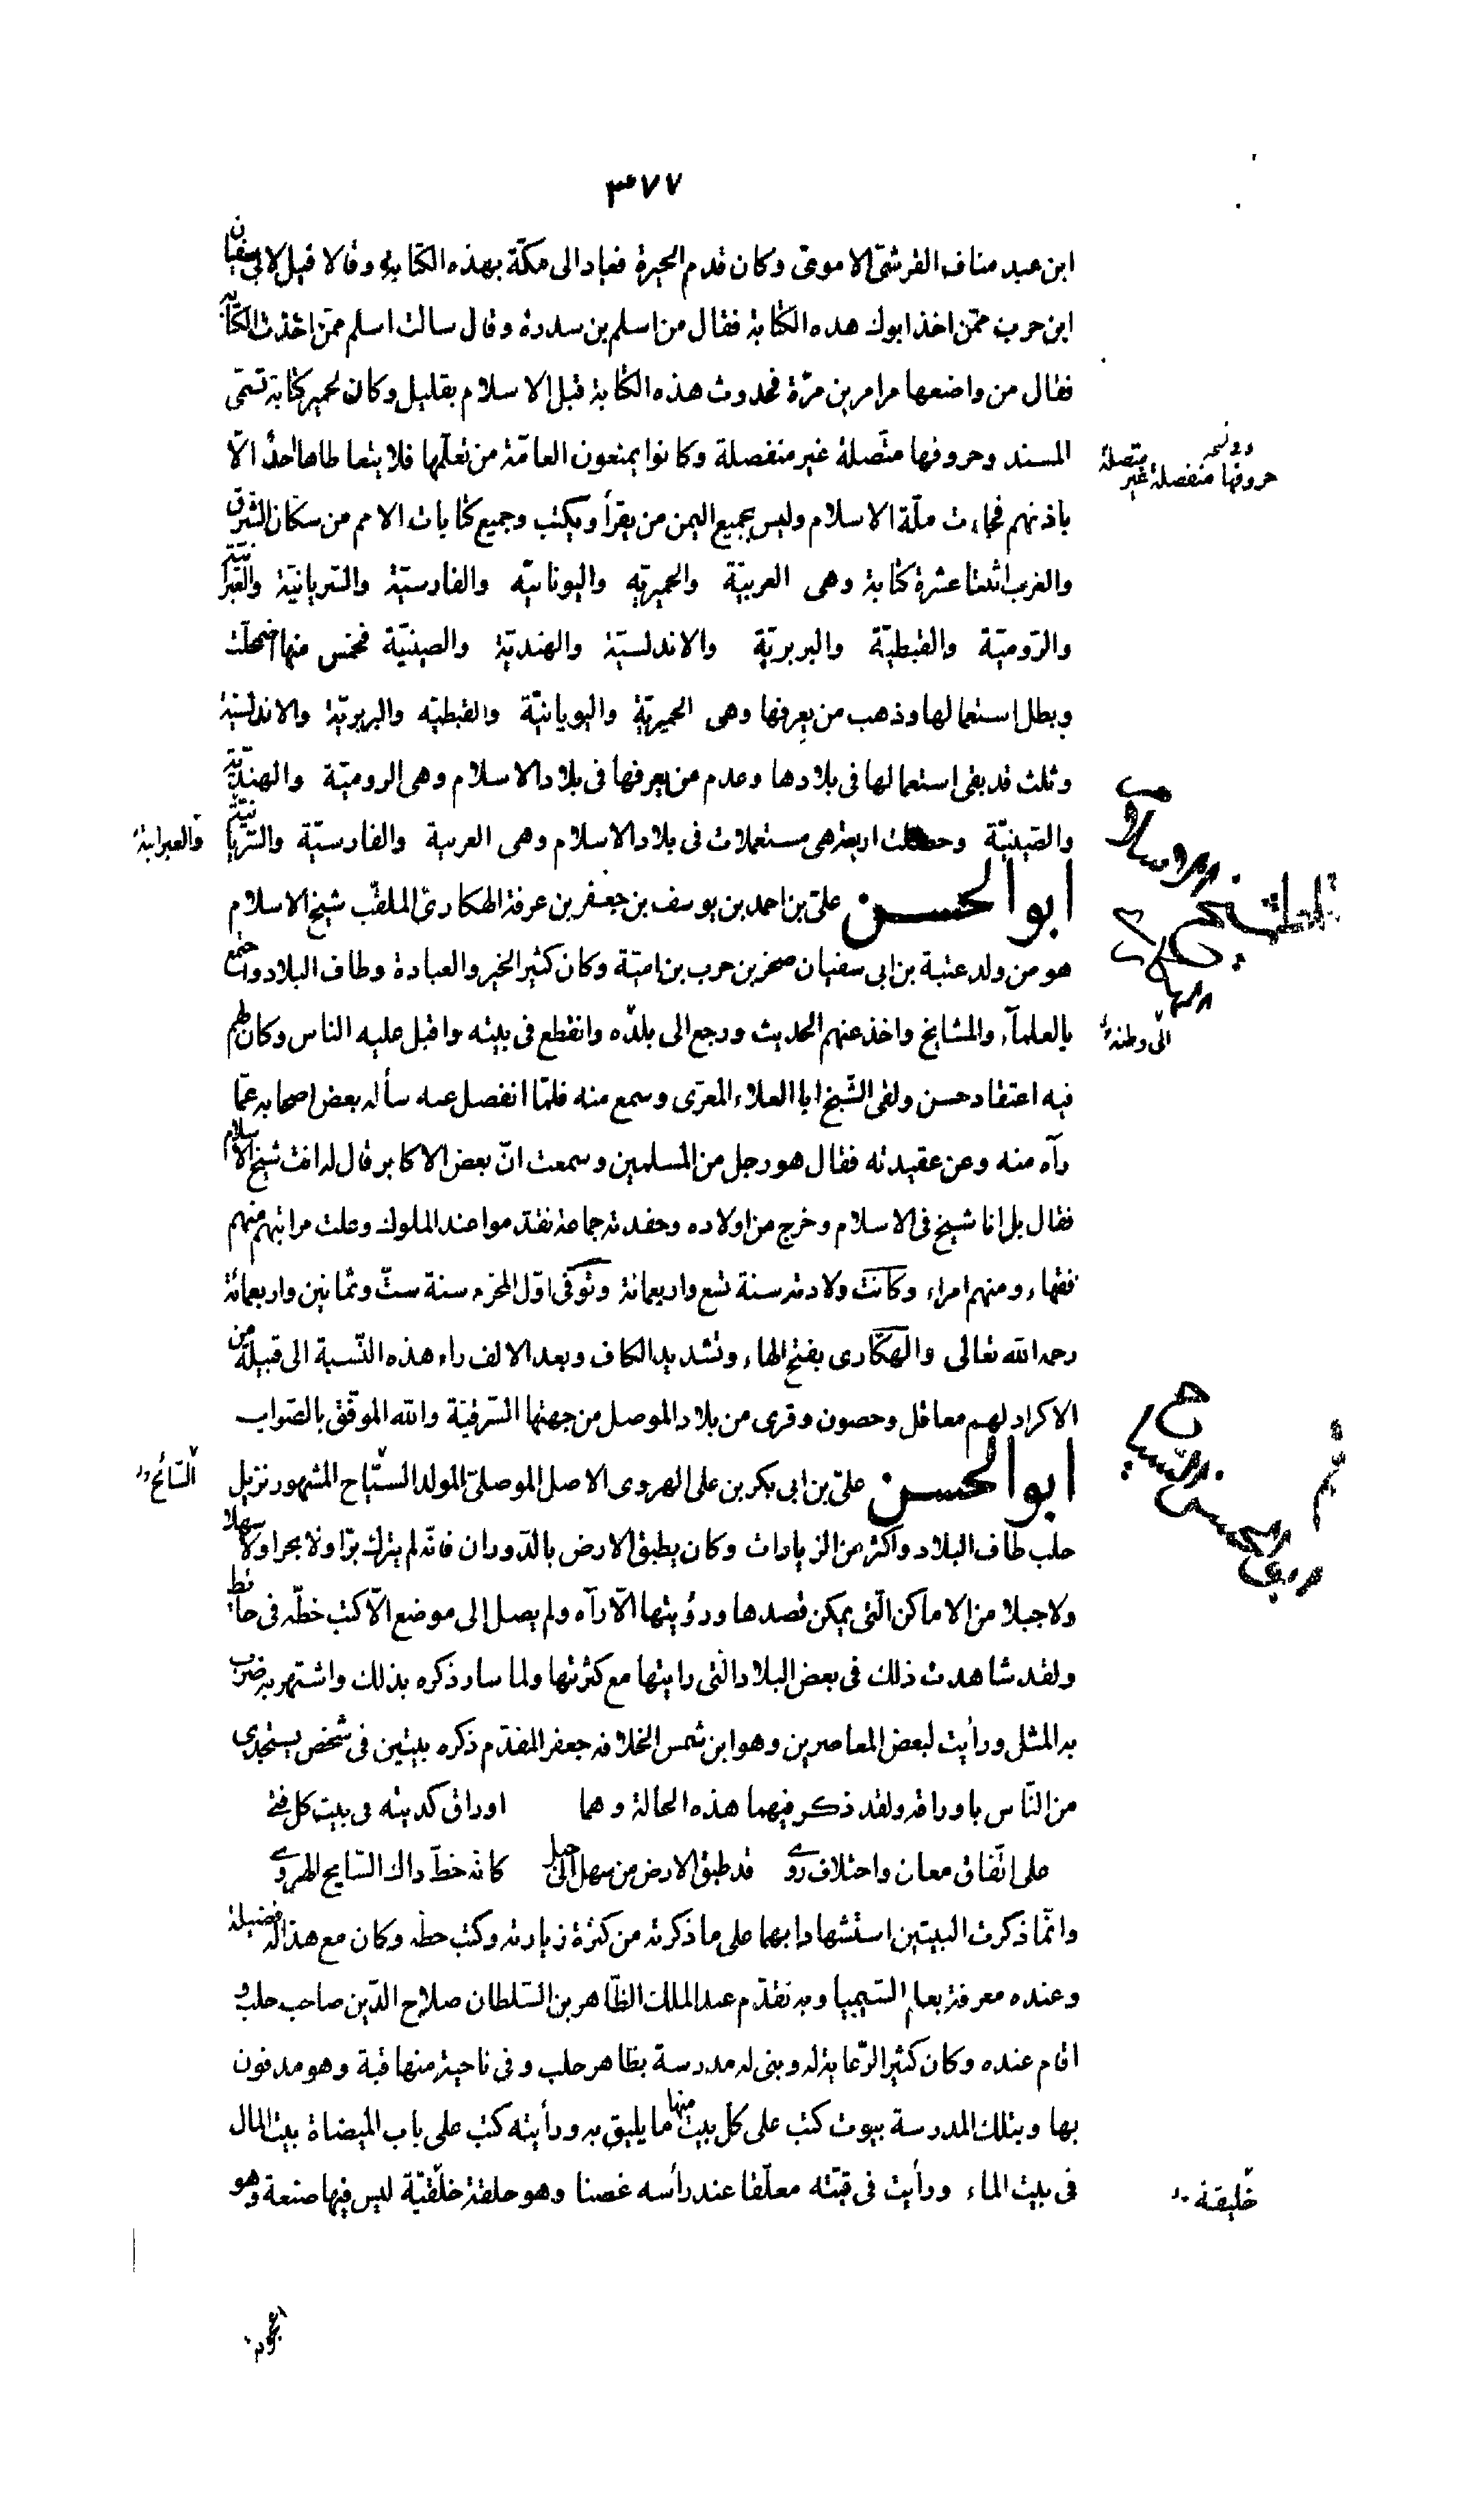 ٣٧٧
ابن عبد مناف القرشىّ الاموىّ وكان قدم الحيرة فعاد الى مكّة بهذه الكتابة وقالا قيل لابى سفيان
ابن حرب ممّن اخذ ابوك هذه الكتابة فقال من اسلم بن سدرة وقال سالت اسلم ممّن اخذت الكتابة
فقال من واضعها مرامر بن مرّة فحدوث هذه الكتابة قبل الاسلام بقليل وكان لحمير كتابة تسمّى
المسند وحروفها متّصلة غير منفصلة وكانوا يمنعون العامّة من تعلّمها فلا يتعاطاها احد الّا
وفى نسخه حروفها منفصلة غير متصلة
باذنهم فجاءت ملّة الاسلام وليس بجميع اليمن من يقرأ ويكتب وجميع كتابات الامم من سكان الشرق
والغرب اثنتا عشرة كتابة وهى العربيّة والحميريّه واليونانيّه والفارسيّة والسّريانيّة والعبرانيّة
والرّوميّة والقبطيّة والبربريّة والاندلسيّة والهنديّة والصينيّة فخمس منها اضمحلّت
وبطل استعمالها وذهب من يعرفها وهى الحميريّة واليونانيّة والقبطيّه والبربريّة والاندلسيّة
وثلث قد بقى استعمالها فى بلادها وعدم من يعرفها فى بلاد الاسلام وهى الروميّة والهنديّة
والصينيّة وحصلت اربعة هى مستعملات فى بلاد الاسلام وهى العربية والفارسيّة والسّريانيّة
والعبرانية
ابو الحسن علىّ بن احمد بن يوسف بن جعفر بن عرفة الهكارىّ الملقّب شيخ الاسلام
هو من ولد عتبة بن ابى سفيان صخر بن حرب بن اميّة وكان كثير الخير والعبادة وطاف البلاد واجتمع
بالعلمآء والمشايخ واخذ عنهم الحديث ورجع الى بلدّه وانقطع فى بيته واقبل عليه الناس وكان لهم
الى وطنه
فيه اعتقاد حسن ولقى الشّيخ ابا العلاء المعرّى وسمع منه فلمّا انفصل عنه سأله بعض اصحابه عمّا
رآه منه وعن عقيدته فقال هو رجل من المسلمين وسمعت انّ بعض الاكابر قال له انت شيخ الاسلام
فقال بل انا شيخ فى الاسلام وخرج من اولاده وحفدته جماعة تقدّموا عند الملوك وعلت مراتبهم منهم
فقهاء ومنهم امراء وكانت ولادته سنة تسع واربعمائة وتوفّى اوّل المحرّم سنة ستّ وثمانين واربعمائة
رحمه الله تعالى والهكّارى بفتح الهاء وتشديد الكاف وبعد الالف راء هذه النّسبة الى قبيلة من
الاكراد لهم معاقل وحصون وقرى من بلاد الموصل من جهتها الشرقيّة والله الموفّق بالصّواب
ابو الحسن علىّ بن ابى بكر بن على الهروى الاصل الموصلىّ المولد السّيّاح المشهور نزيل
السّائح
حلب طاف البلاد واكثر من الزيارات وكان يطبق الارض بالدّوران فانّه لم يترك برّا ولا بحرا ولا سهلا
ولا جبلا من الاماكن الّتى يمكن قصدها ورؤيتها الّا رآه ولم يصل الى موضع الّا كتب خطّه فى حائط
ولقد شاهدت ذلك فى بعض البلاد الّتى رايتها مع كثرتها ولما سار ذكره بذلك واشتهر به ضرب
به المثل ورأيت لبعض المعاصرين وهو ابن شمس الخلافه جعفر المقدّم ذكره بيتين فى شخص يستجدى
من النّاس باوراقه ولقد ذكر فيهما هذه الحالة وهما اوراق كديته فى بيت كل فتى
على اتّفاق معان واختلاف روى قد طبق الارض من سهل الى جبل كانه خطّ ذاك السّايح الهروى
وانّما ذكرت البيتين استشهادا بهما على ما ذكرته من كثرة زيارته وكتب خطه وكان مع هذا له فضيلة
وعنده معرفة بعلم السّيميا وبه تقدّم عند الملك الظّاهر بن السّلطان صلاح الدّين صاحب حلب و
اقام عنده وكان كثير الرّعاية له وبنى له مدرسة بظاهر حلب وفى ناحية منها قبة وهو مدفون
بها وبتلك المدرسة بيوت كتب على كلّ بيت منها ما يليق به ورأيته كتب على باب الميضاة بيت المال
فى بيت الماء ورأيت فى قبّته معلّقا عند رأسه غصنا وهو حلقة خلّقيّة ليس فيها صنعة وهو
خليقة